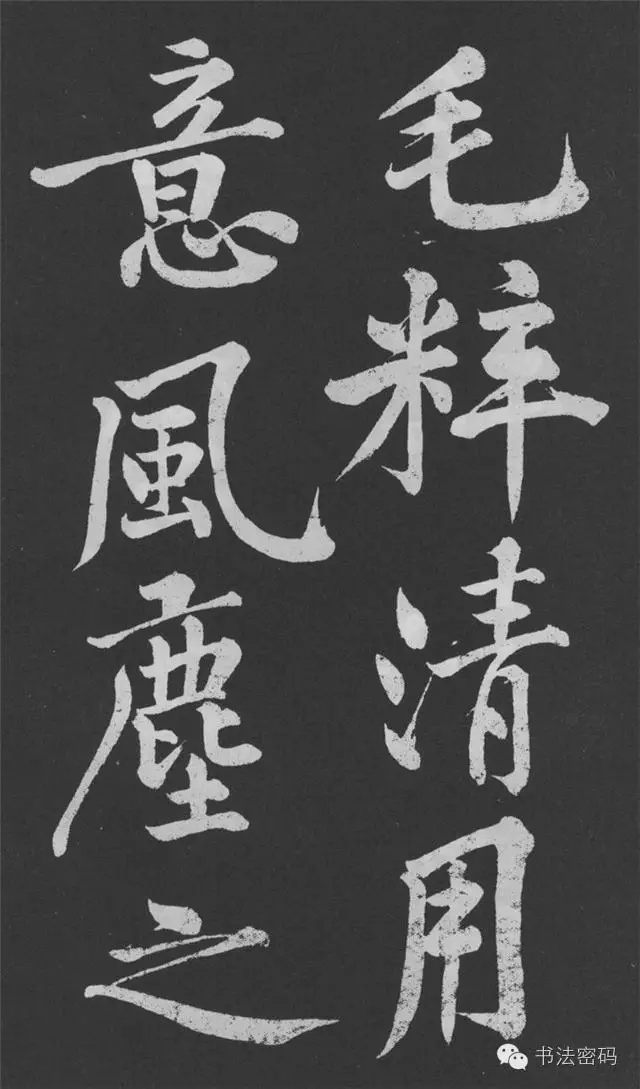 毛粹清用
意風塵之
书法密码